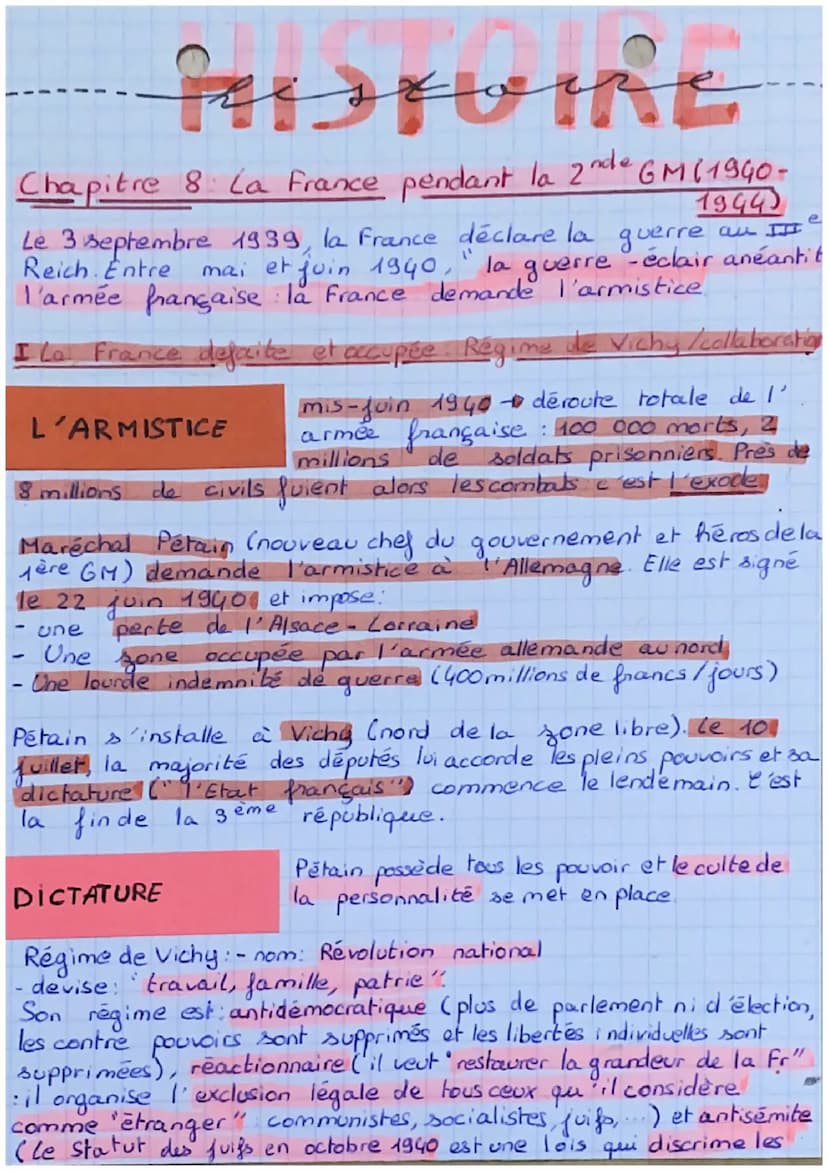 HISTOIRE
histoire
Chapitre 8: La France pendant la 2nde GM (1940-
1944)
Le 3 septembre 1939, la France déclare la guerre au IIIe
Reich. Entre mai et juin 1940, "la guerre-éclair anéantit
l'armée française : la France demande l'armistice
I La France defaite et occupée. Régime de Vichy/collaboratio
L'ARMISTICE
mis-juin 1940 → déroute totale de l'
armée française : 100 000 morts, 2
millions de soldats prisonniers. Près de
8 millions de civils fuient alors les combats c'est l'exode
Maréchal Pétain (nouveau chef du gouvernement et héros de la
1ère GM) demande l'armistice à l'Allemagne. Elle est signé
le 22 juin 1940 et impose:
- une perte de l'Alsace-Lorraine
- Une zone occupée par l'armée allemande au nord
- Une lourde indemnité de guerre (400 millions de francs/jours)
Pétain s'installe à Vichy (nord de la zone libre). Le 10
juillet, la majorité des députés lui accorde les pleins pouvoirs et sa
dictature ("l'Etat français") commence le lendemain. C'est
la fin de la 3ème république.
DICTATURE
Pétain possède tous les pouvoir et le culte de
la personnalité se met en place
Régime de Vichy: - nom: Révolution national
- devise: "travail, famille, patrie".
Son régime est: antidémocratique (plus de parlement ni d'élection,
les contre pouvoirs sont supprimés et les libertés individuelles sont
supprimées), réactionnaire (il veut "restaurer la grandeur de la Fr"
: il organise l'exclusion légale de tous ceux qu'il considère
comme "étranger" communistes, socialistes, juifs, ...) et antisémite
(Le statut des juifs en octobre 1940 est une lois qui discrime les